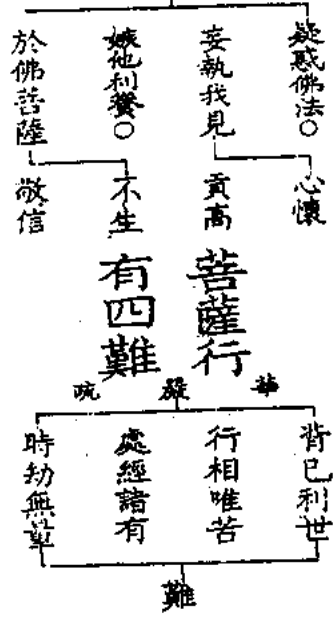 疑惑佛法○
妄執我見
心懷
貢高
嫉他利養○
於佛菩薩
不生
敬信
菩薩行
有四難
華嚴疏
背己利世
行相唯苦
處經諸有
時劫無量
難